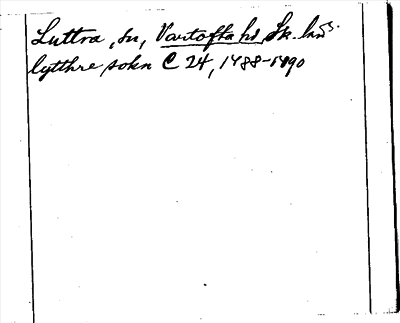 Luttra, sn, Vartofta hd, Sk. län
lytthre sokn C 24, 1488-1490